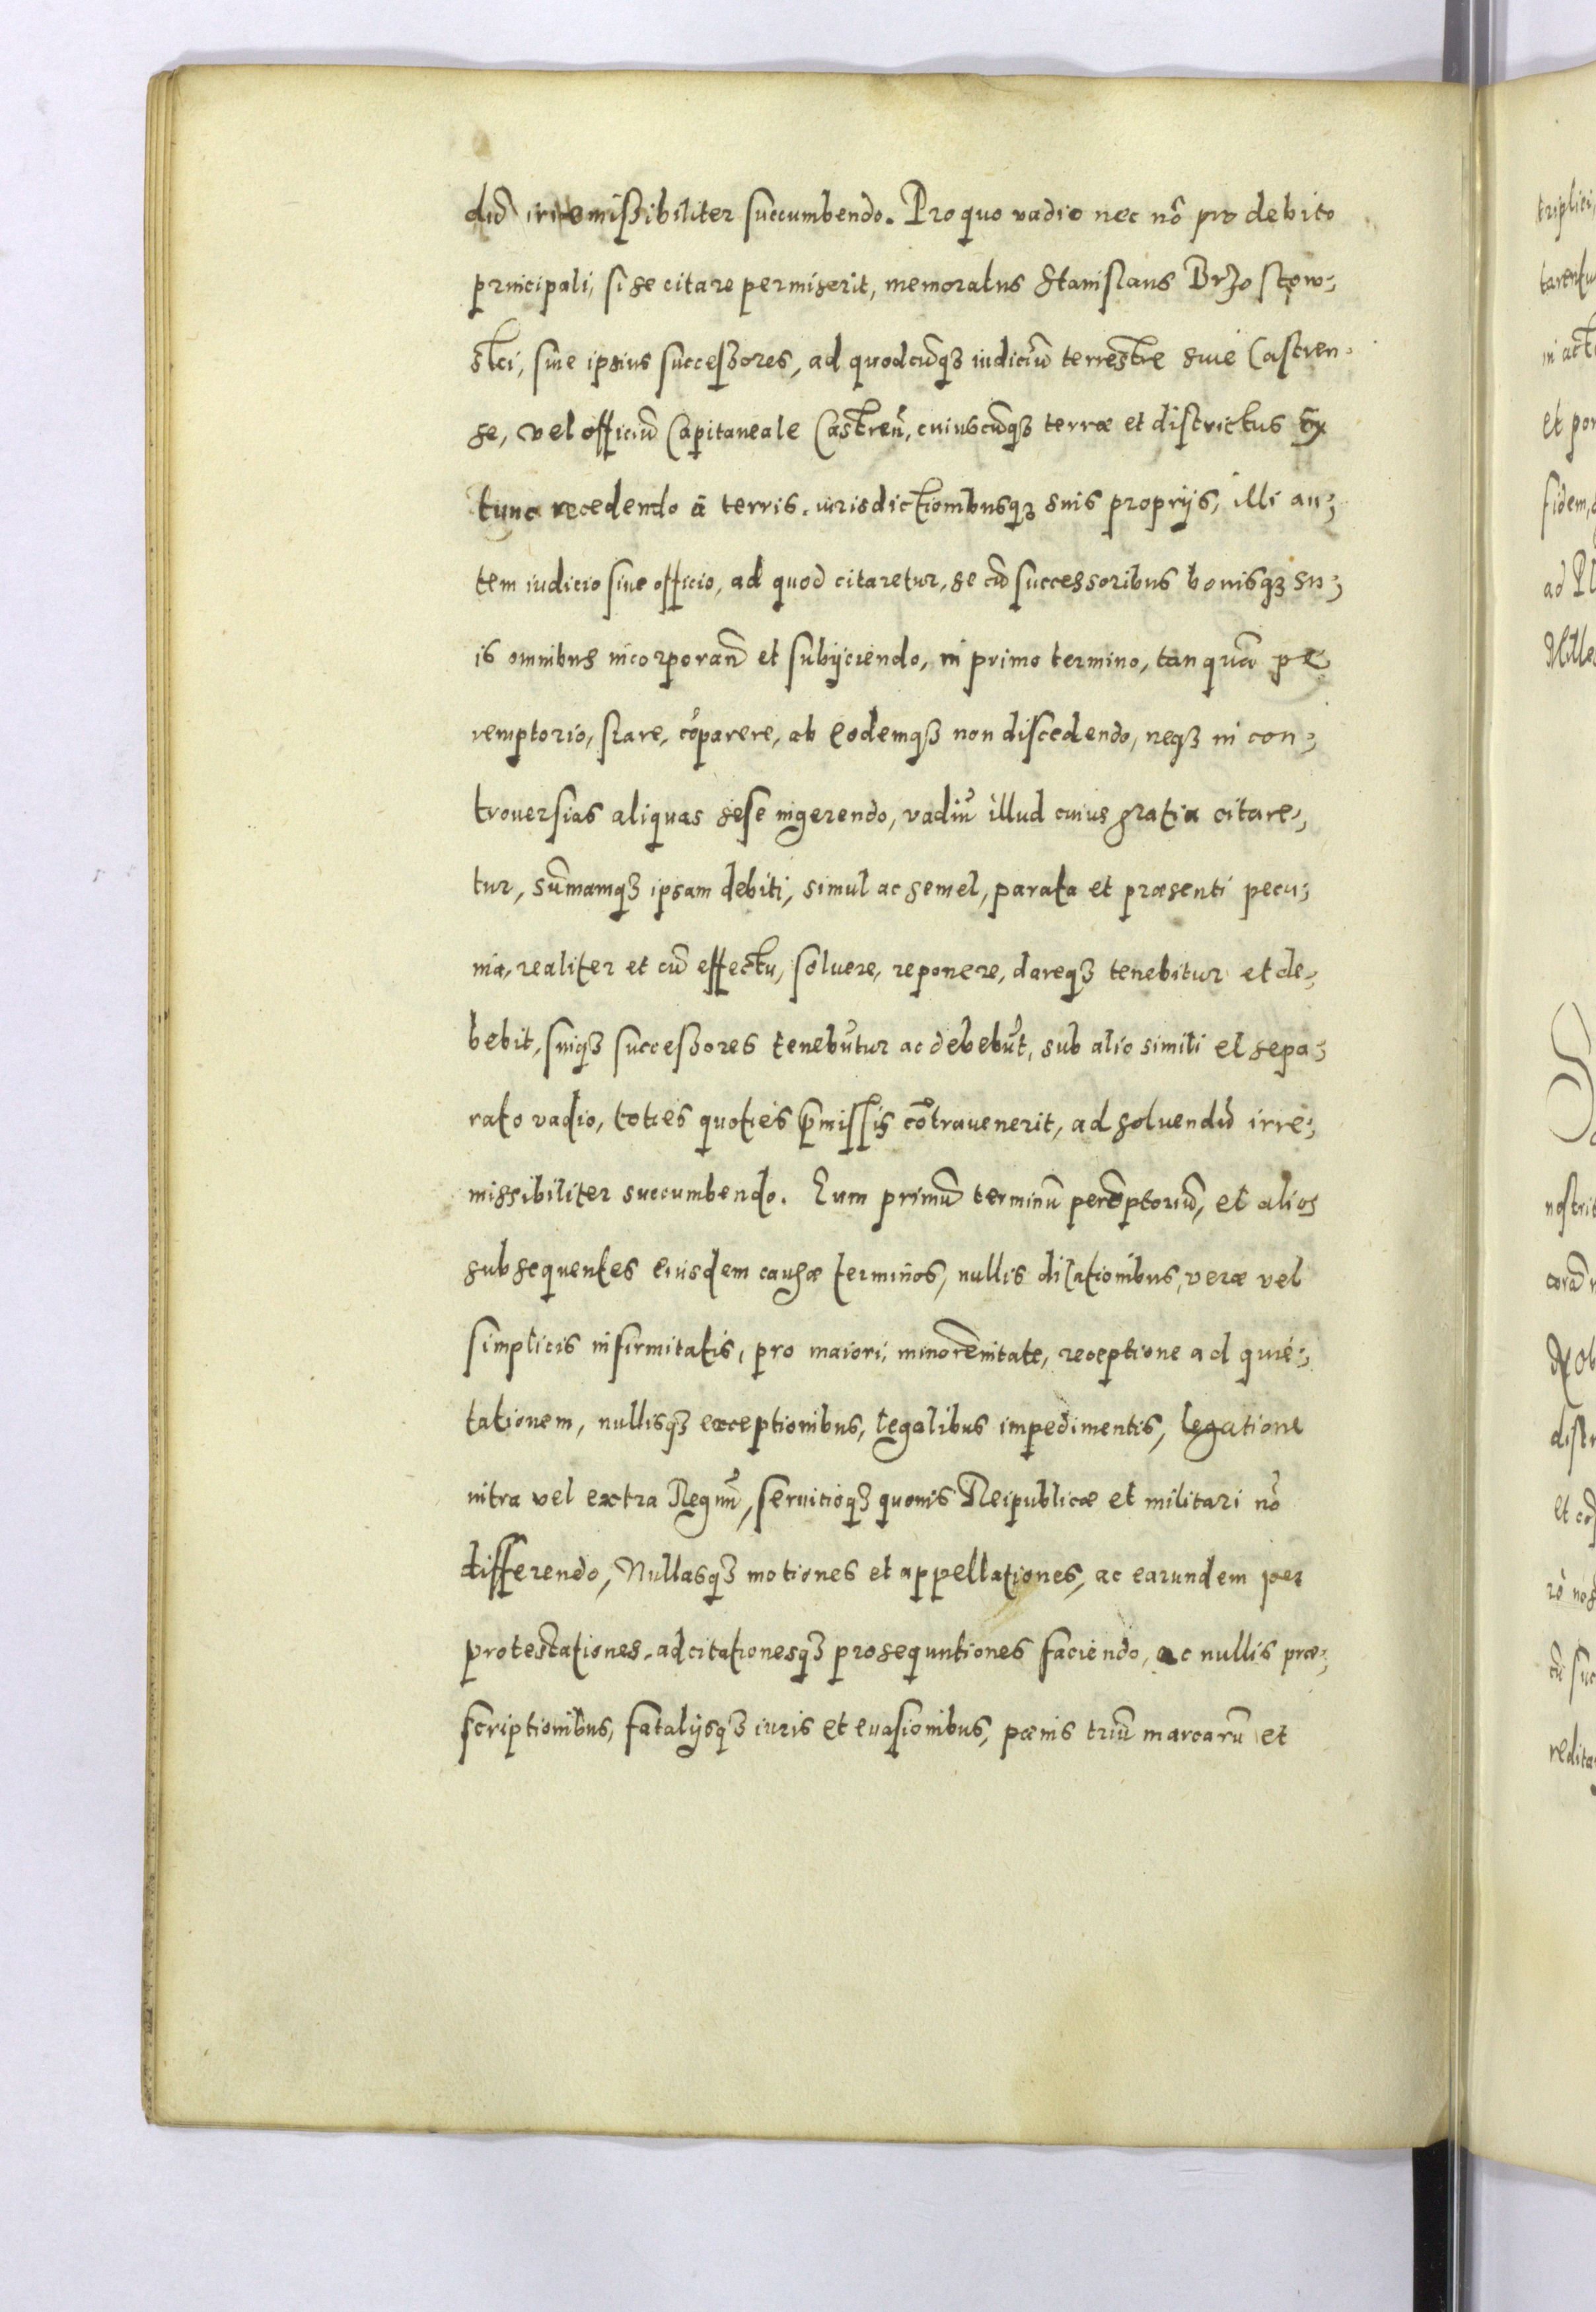 dũ irremißibiliter succumbendo. Pro quo vadio nec nõ pro debito
principali, si se citare permiserit, memoratus Stanislaus Brzostow-
skci, siue ipsius succeßores, ad quodcũqꝫ iudiciũ terrestre siue Castren-
se, vel officiũ Capitaneale Castreñ, cuiuscũqꝫ terræ et districtus Ex
tunc recedendo à terris, iurisdictionibusqꝫ suis proprijs, illi au-
tem iudicio siue officio, ad quod citaretur, se cũ successoribus bonisqꝫ su-
is omnibus incorporañ et subijciendo, in primo termino, tanquã pe-
remptorio, stare, cõparere, ab eodemqꝫ non discedendo, neqꝫ in con-
trouersias aliquas sese ingerendo, vadiũ illud cuius gratia citare-
tur, sũmamqꝫ ipsam debiti, simul ac semel, parata et præsenti pecu-
nia, realiter et cũ effectu, soluere, reponere, dareqꝫ tenebitur et de-
bebit, suiqꝫ succeßores tenebũtur ac debebũt, sub alio simili et sepa-
rato vadio, toties quoties p̃missis cõtrauenerit, ad soluendũ irre-
missibiliter succumbendo. Eum primũ terminũ perẽptoriũ, et alios
subsequentes eiusdem causæ terminos, nullis dilationibus, veræ vel
simplicis infirmitatis, pro maiori, minorẽnitate, receptione ad quie-
tationem, nullisqꝫ exceptionibus, legalibus impedimentis, legatione
intra vel extra Regnũ, seruitioqꝫ quouis Reipublicæ et militari nõ
differendo, Nullasqꝫ motiones et appellationes, ac earundem per
protestationes, adcitationesqꝫ prosequutiones faciendo, ac nullis præ-
scriptionibus, fatalijsqꝫ iuris et euasionibus, pœnis triũ marcarũ et